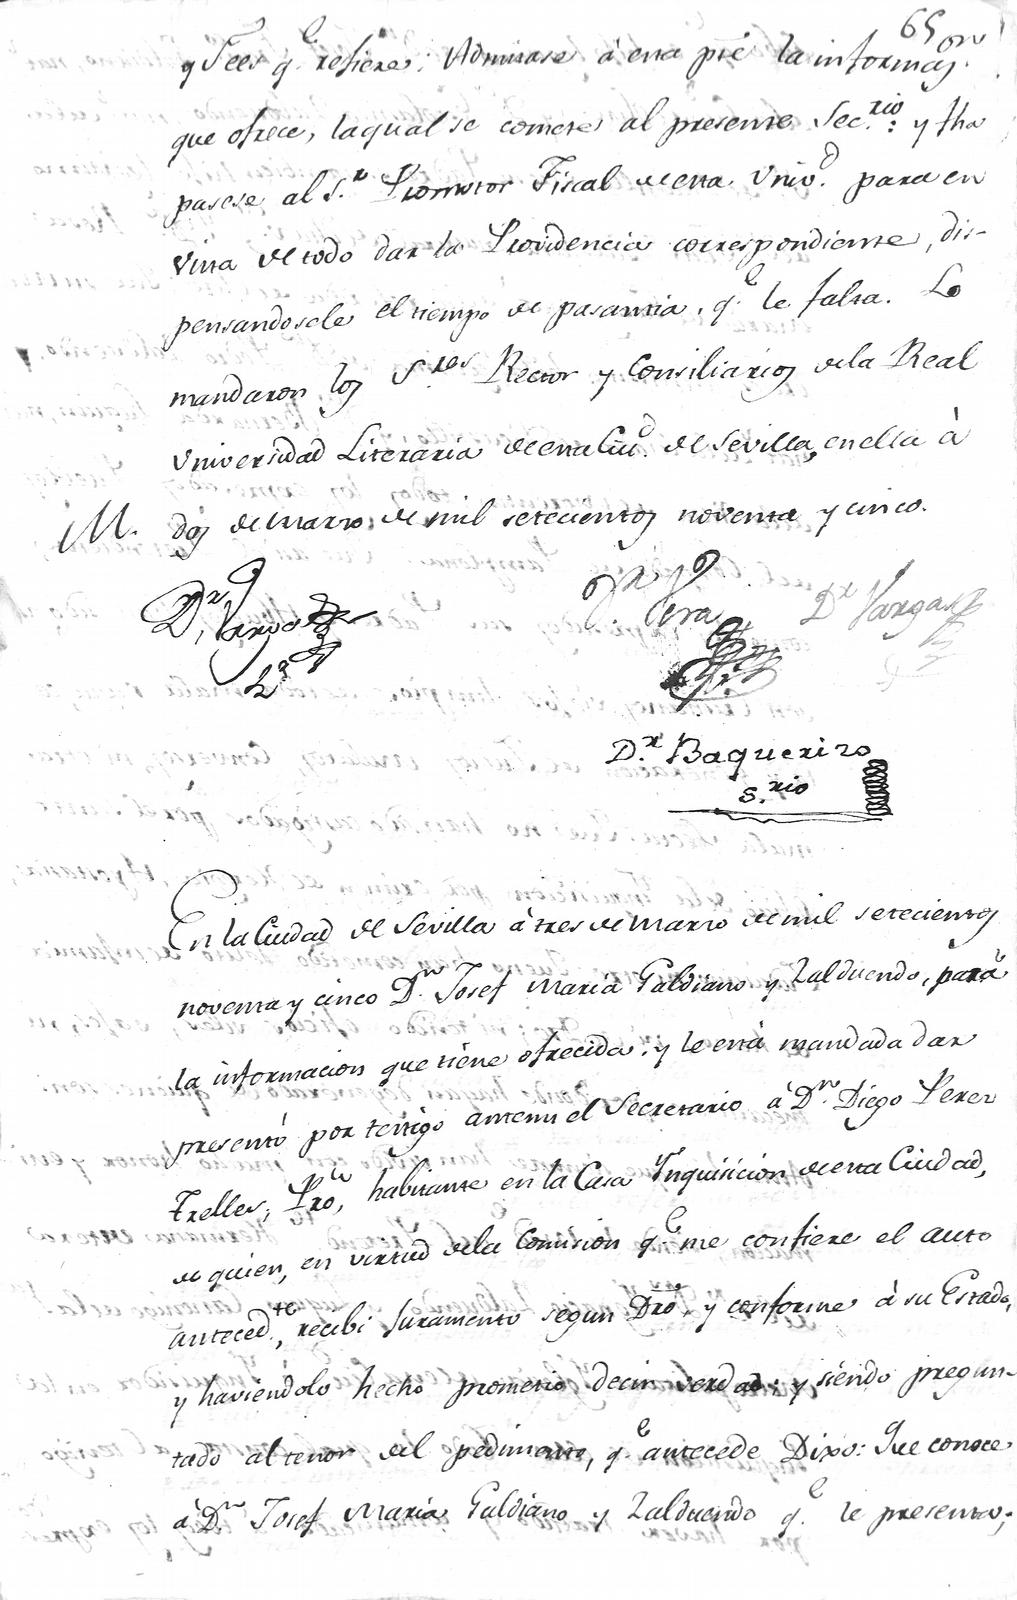 65
y Fees q.e refiere: Admitase â esta pte la informas.on
que ofrece, laqual se comete al presente Sec.rio: y fha
pasese al S.r Promotor Fiscal de esta Univ.d para en
vista de todo dar la Providencia correspondiente, dis-
pensandosele el tiempo de pasantia, q.e le falta. Lo
mandaron los S.res Rector y Consiliarios dela Real
Universidad Literaria de esta Ciu.d de Sevilla, en ella â
M. dos de Marzo de mil setecientos noventa y cinco.
D.r Vargas
D.r Vera
D.r Vargas
D.r Baquerizo
S.rio
En la Ciudad de Sevilla â tres de Marzo de mil setecientos
noventa y cinco D.n Josef Maria Galdiano y Zalduendo, para
la informacion que tiene ofrecida, y le está mandada dar
presentó por testigo antemi el Secretario â D.n Diego Perez
Trelles, Pro, habitante en la Casa Ynquisicion de esta Ciudad,
de quien, en virtud dela Comision q.e me confiere el auto
anteced.te, recibi Juramento segun Dro, y conforme â su Estado,
y haviendolo hecho prometió decir verdad; y siendo pregun-
tado al tenor del pedimento, q.e antecede Dixo: Que conoce
â D.n Josef Maria Galdiano y Zalduendo q.e le presenta;